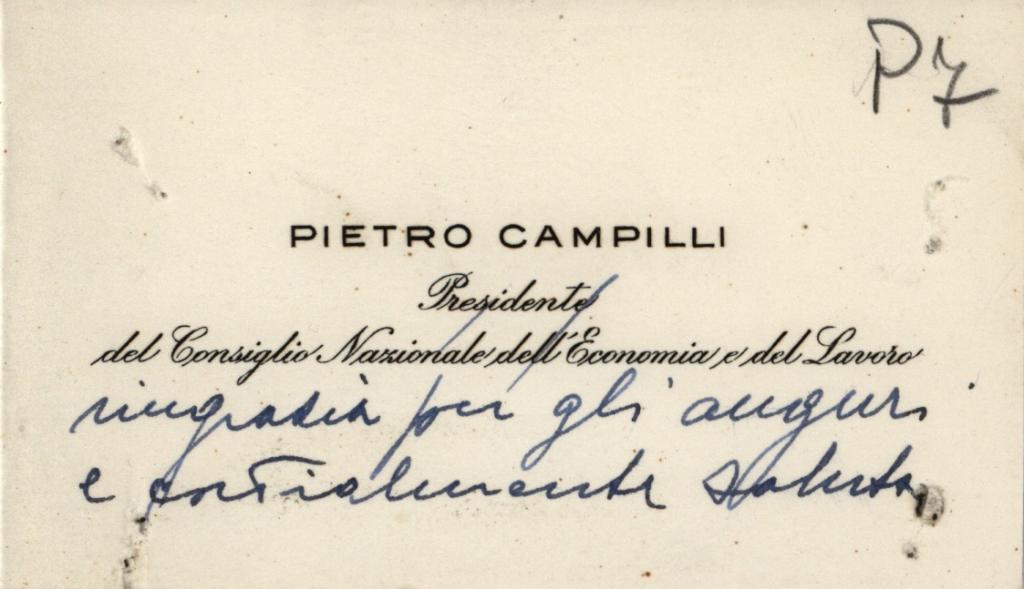 P7
PIETRO CAMPILLI
Presidente
del Consiglio Nazionale dell'Economia e del Lavoro
ringrazia per gli auguri
e cordialmente saluta